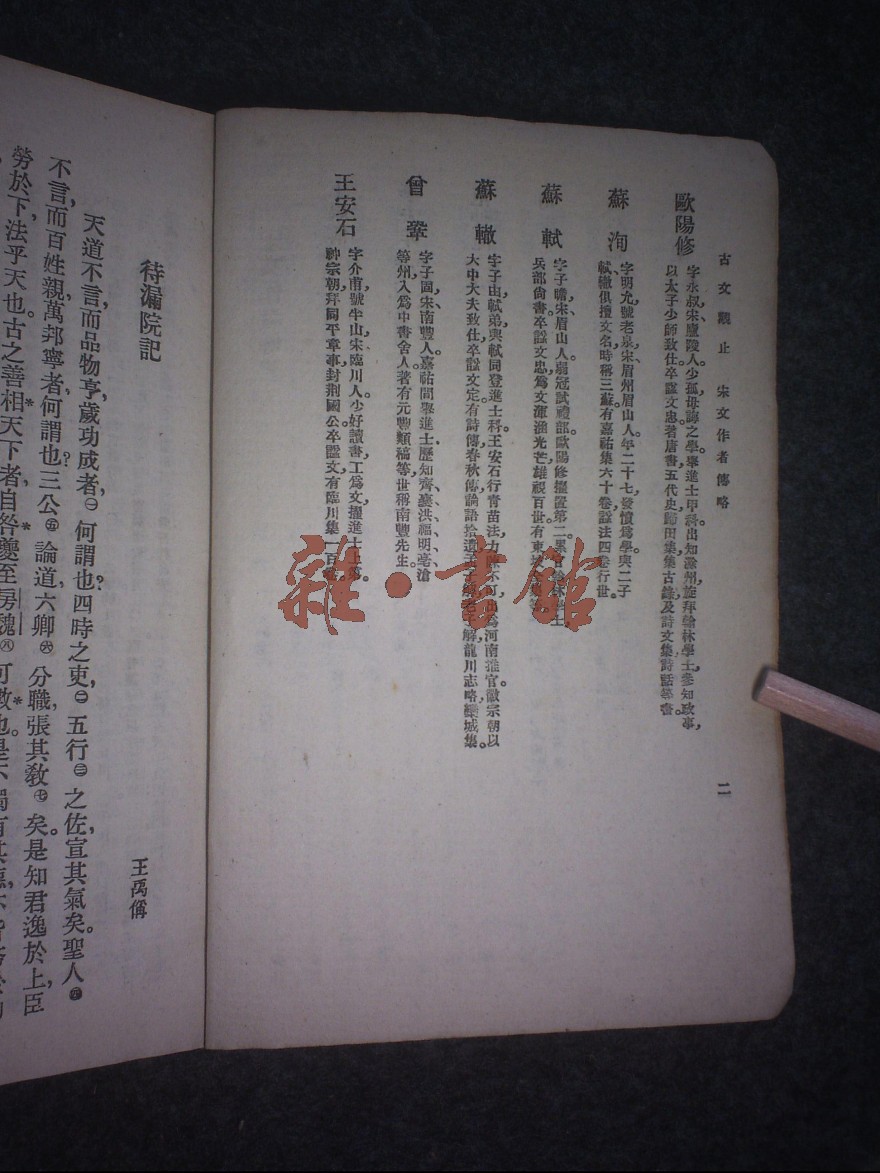 古文觀止　宋文作者傳略
二
歐陽修
字永叔,宋廬陵人。少孤,母誨之學,舉進士甲科,出知滁州,旋拜翰林學士,參知政事,
以太子少師致仕。卒謚文忠。著唐書,五代史,歸田集,集古錄,及詩文集,詩話等書。
蘇洵
字明允,號老泉,宋眉州眉山人。年二十七,發憤爲學,與二子
軾轍俱擅文名,時稱三蘇。有嘉祐集六十卷,謚法四卷行世。
蘇軾
字子瞻,宋眉山人。弱冠試禮部,歐陽修擢置第二,累官
兵部尙書。卒謚文忠。爲文渾涵光芒,雄視百世。有東坡
蘇轍
字子由,軾弟。與軾同登進士科。王安石行青苗法,力陳不可,出爲河南推官。徽宗朝以
大中大夫致仕。卒謚文定。有詩傳,春秋傳,論語拾遺,孟子解,龍川志略,欒城集。
曾鞏
字子固,宋南豐人。嘉祐間舉進士,歷知齊,襄,洪,福,明,亳,滄
等州,入爲中書舍人。著有元豐類稿等,世稱南豐先生。
王安石
字介甫,號半山,宋臨川人。少好讀書,工爲文,擢進士上第。
神宗朝拜同平章事,封荆國公。卒謚文。有臨川集一百卷。
雜·書館
待漏院記
王禹偁
天道不言,而品物亨,歲功成者,㊀何謂也?四時之吏,㊁五行㊂之佐,宣其氣矣。聖人㊃
不言,而百姓親,萬邦寧者,何謂也?三公㊄論道,六卿㊅分職,張其敎㊆矣。是知君逸於上,臣
勞於下,法乎天也。古之善相天下者,自咎夔至房魏㊇可數也。是不獨有其德,